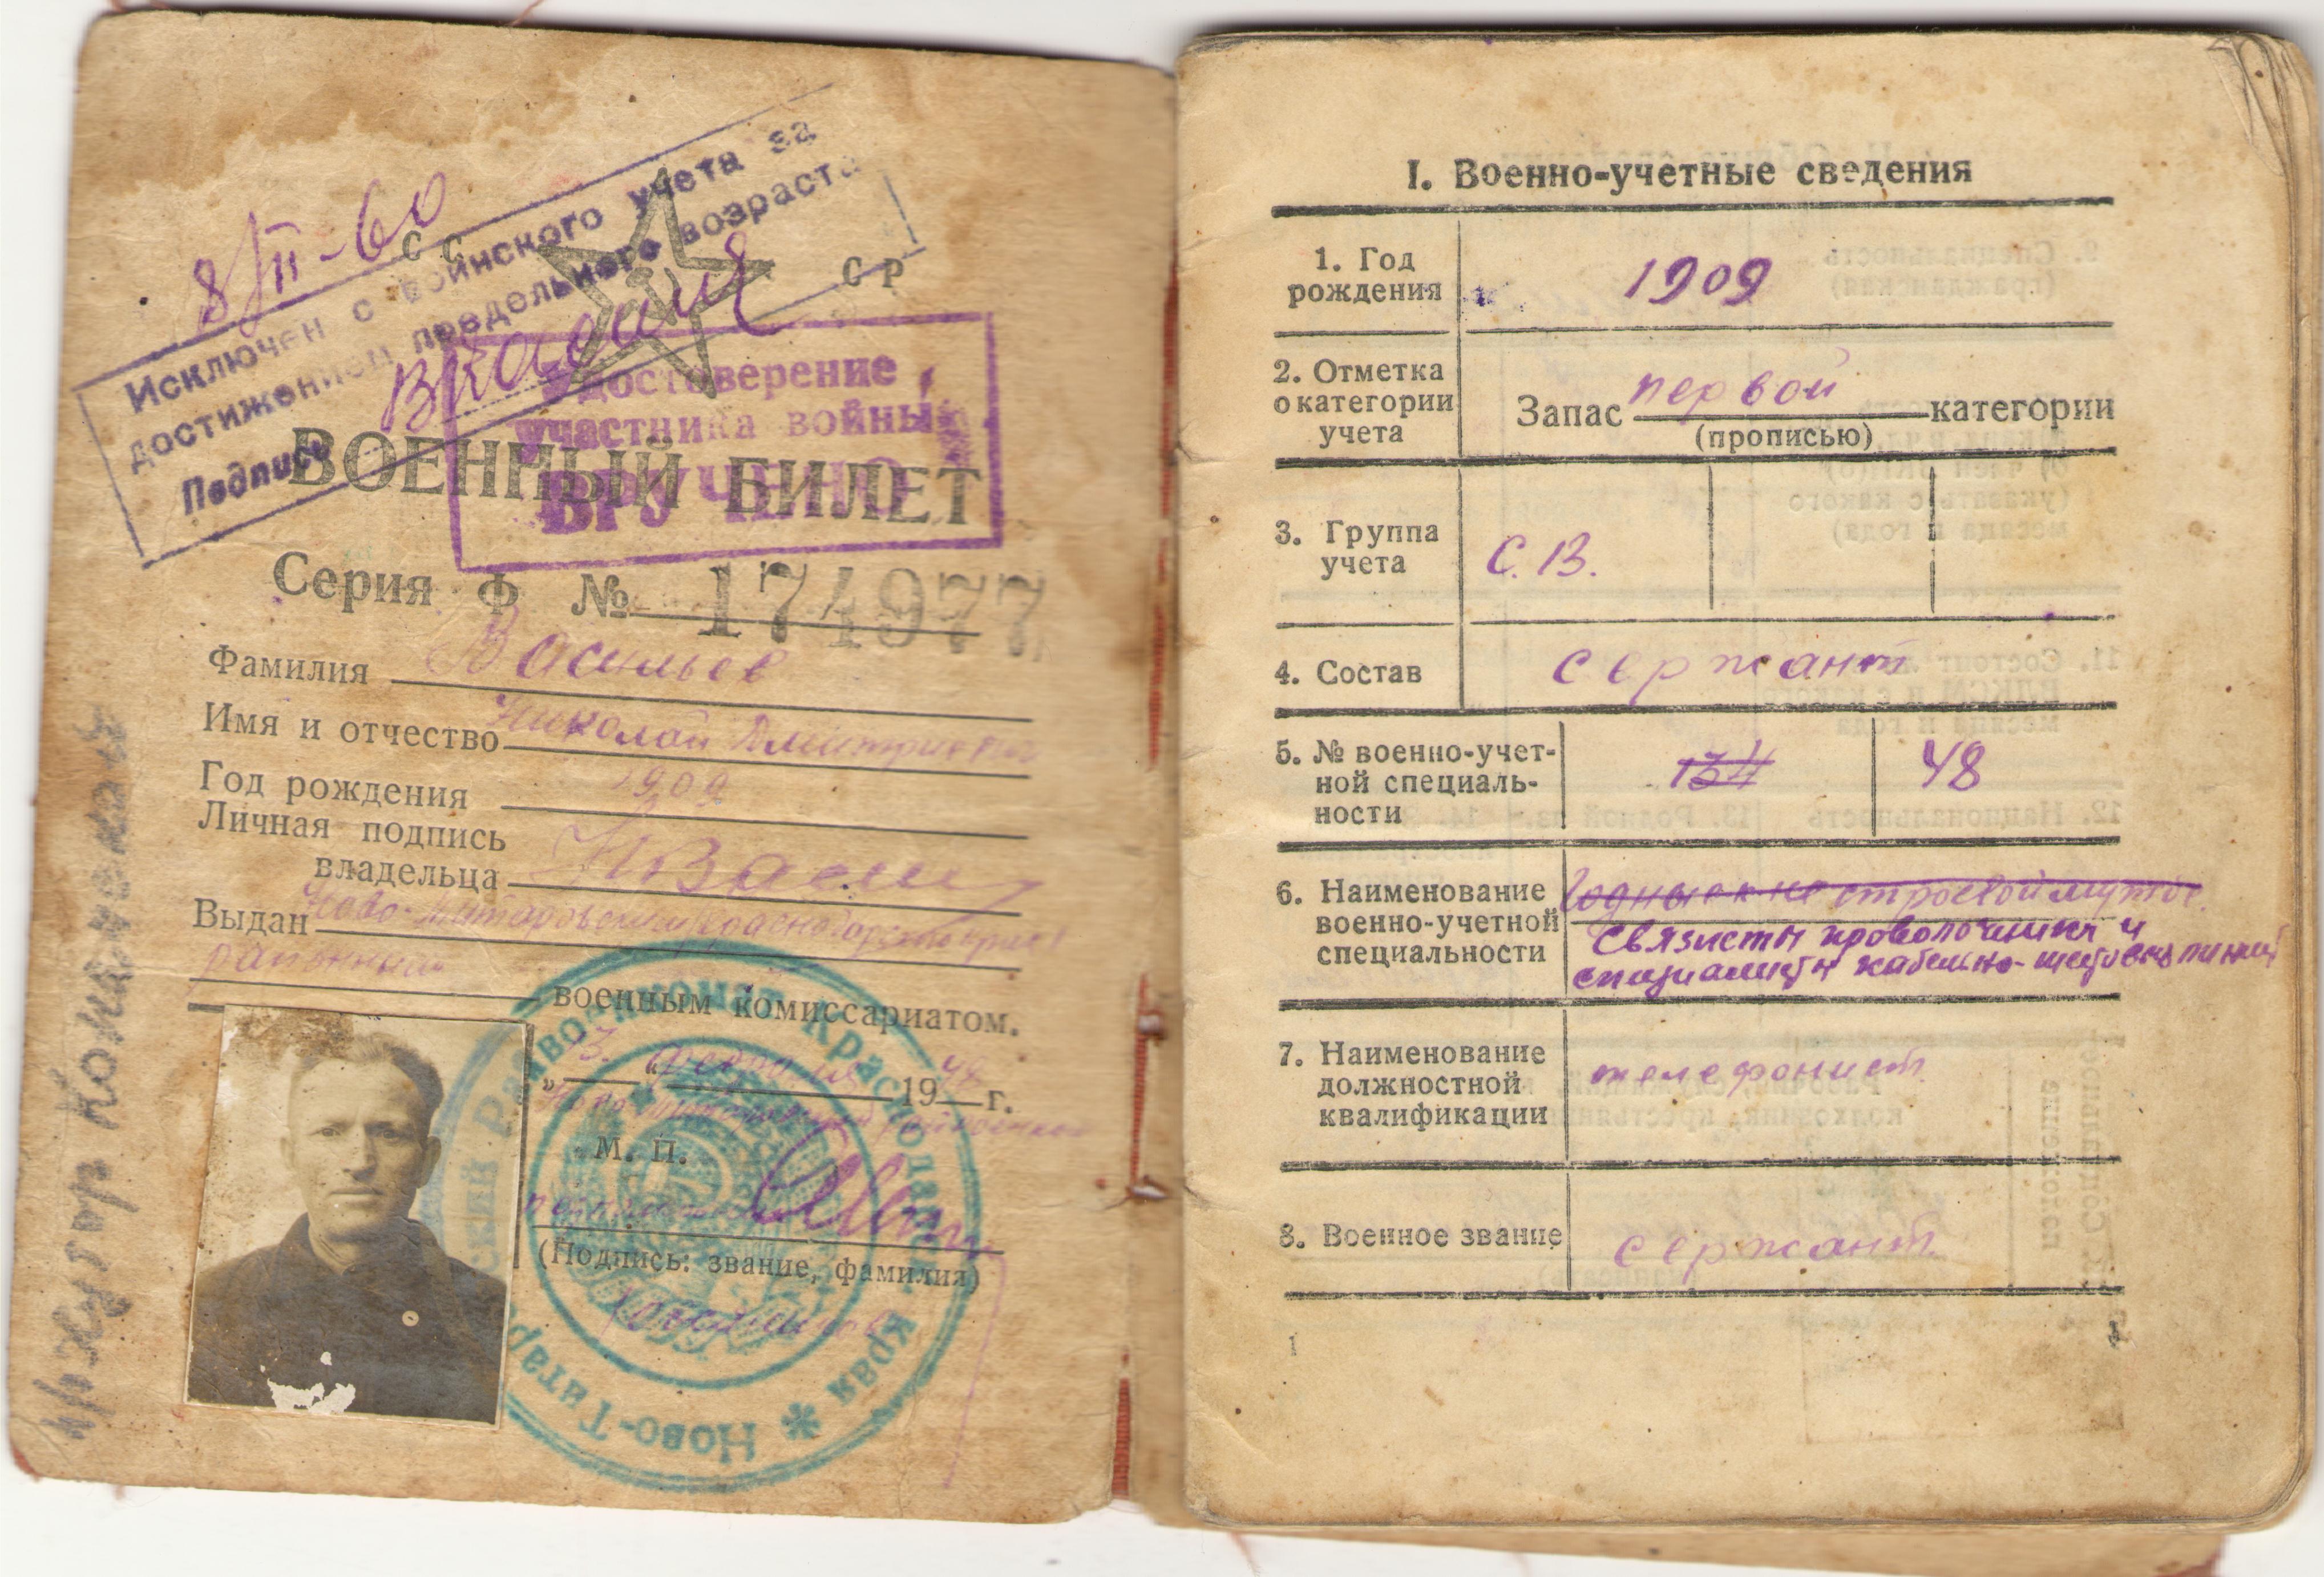 8/II-60
СССР
Исключен с воинского учета за
достижением предельного возраста
Подпись
Удостоверение
участника войны
ВРУЧЕНО
ВОЕННЫЙ БИЛЕТ
Серия Ф № 174977
Фамилия Васильев
Имя и отчество Николай Дмитриевич
Год рождения 1909
Личная подпись
владельца
Выдан Ново-Титаровским Краснодарского края
районным
военным комиссариатом.
„3“ февраля 1948 г.
М. П.
(Подпись: звание, фамилия)
Райвоенкомат Краснодар края * Ново-Титар
I. Военно-учетные сведения
1. Год
рождения
1909
2. Отметка
о категории
учета
Запас первой категории
(прописью)
3. Группа
учета
С. В.
4. Состав
сержант
5. № военно-учет-
ной специаль-
ности
134
48
6. Наименование
военно-учетной
специальности
Годные к не строевой службе
Связисты проволочники и
специалисты кабельно-шестовых линий
7. Наименование
должностной
квалификации
телефонист
8. Военное звание
сержант
1